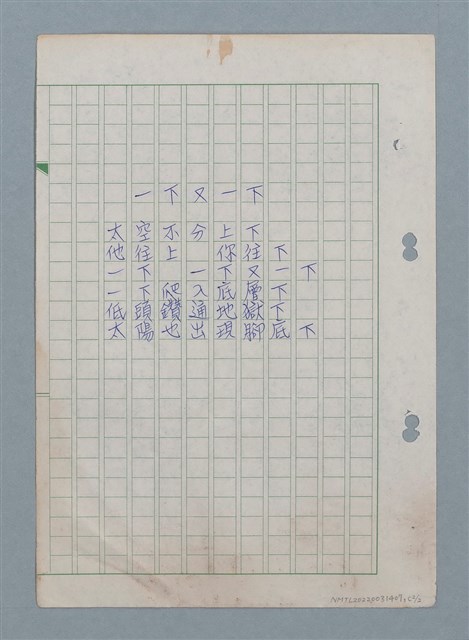 一下又一下
太空不分上下
他往上 你往下
一下 一下又一下
一下爬入底層下
低頭鑽通地獄下
太陽也出現腳底下
NMTL20220031409,c2/2